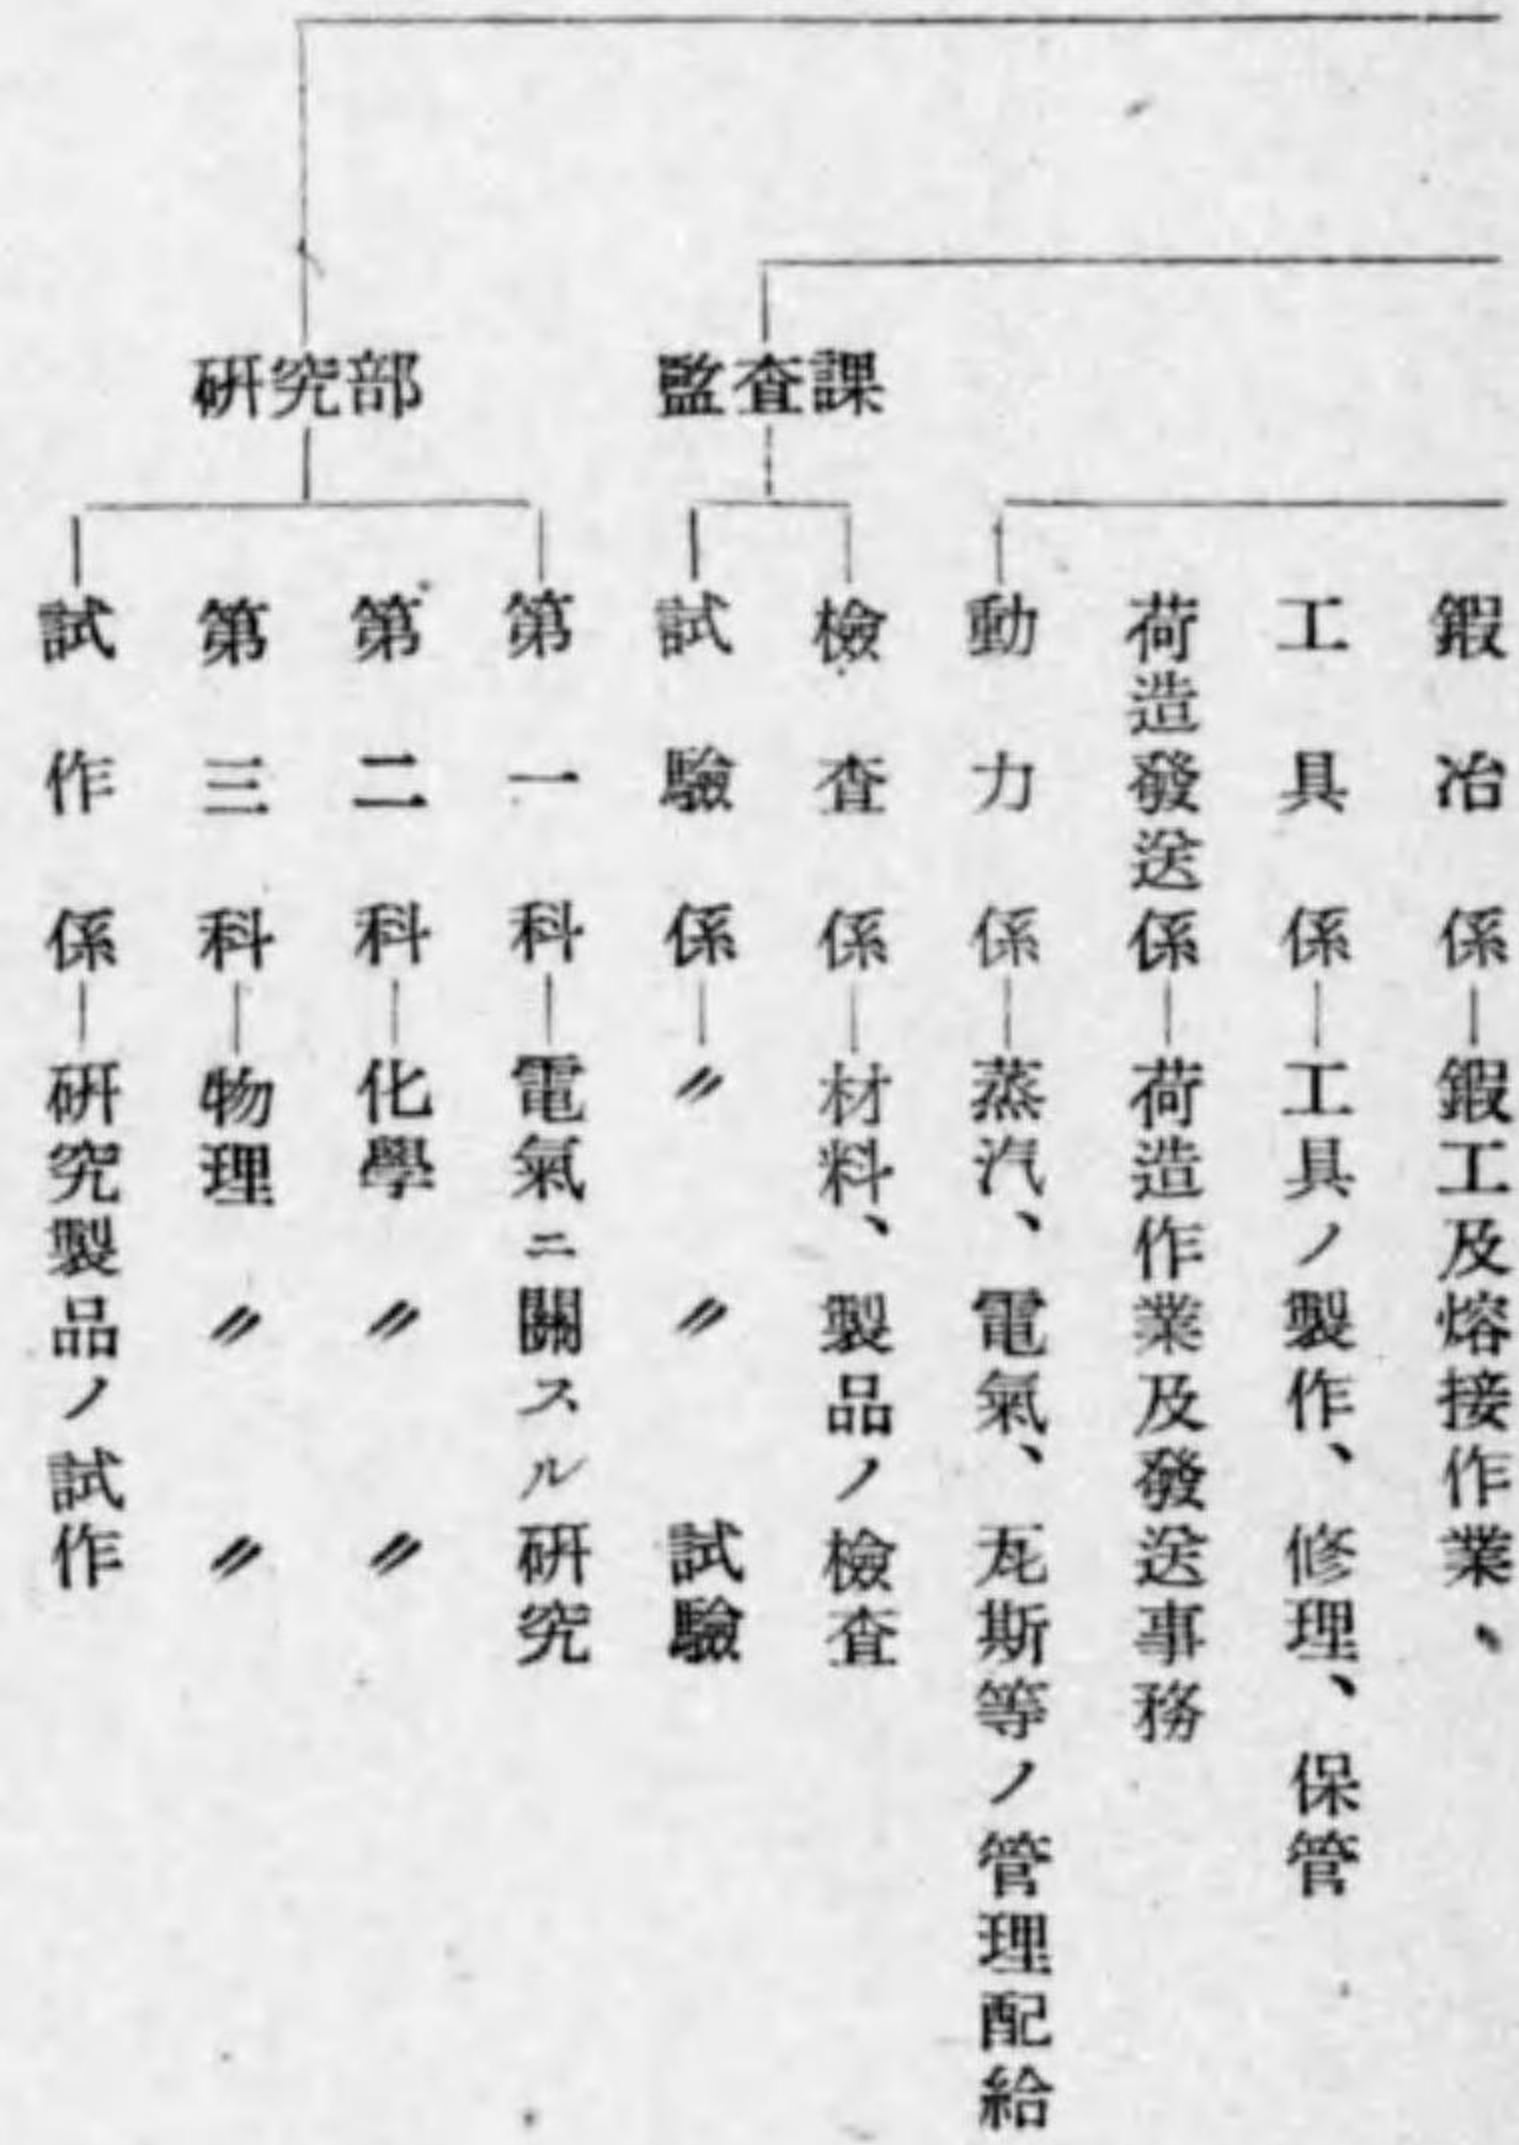 鍜冶係―鍜工及熔接作業、
工具係―工具ノ製作、修理、保管
荷造發送係―荷造作業及發送事務
動力係―蒸汽、電氣、瓦斯等ノ管理配給
監査課
檢査係―材料、製品ノ檢査
試驗係―〃〃試驗
研究部
第一科―電氣ニ關スル研究
第二科―化學〃〃
第三科―物理〃〃
試作係―研究製品ノ試作